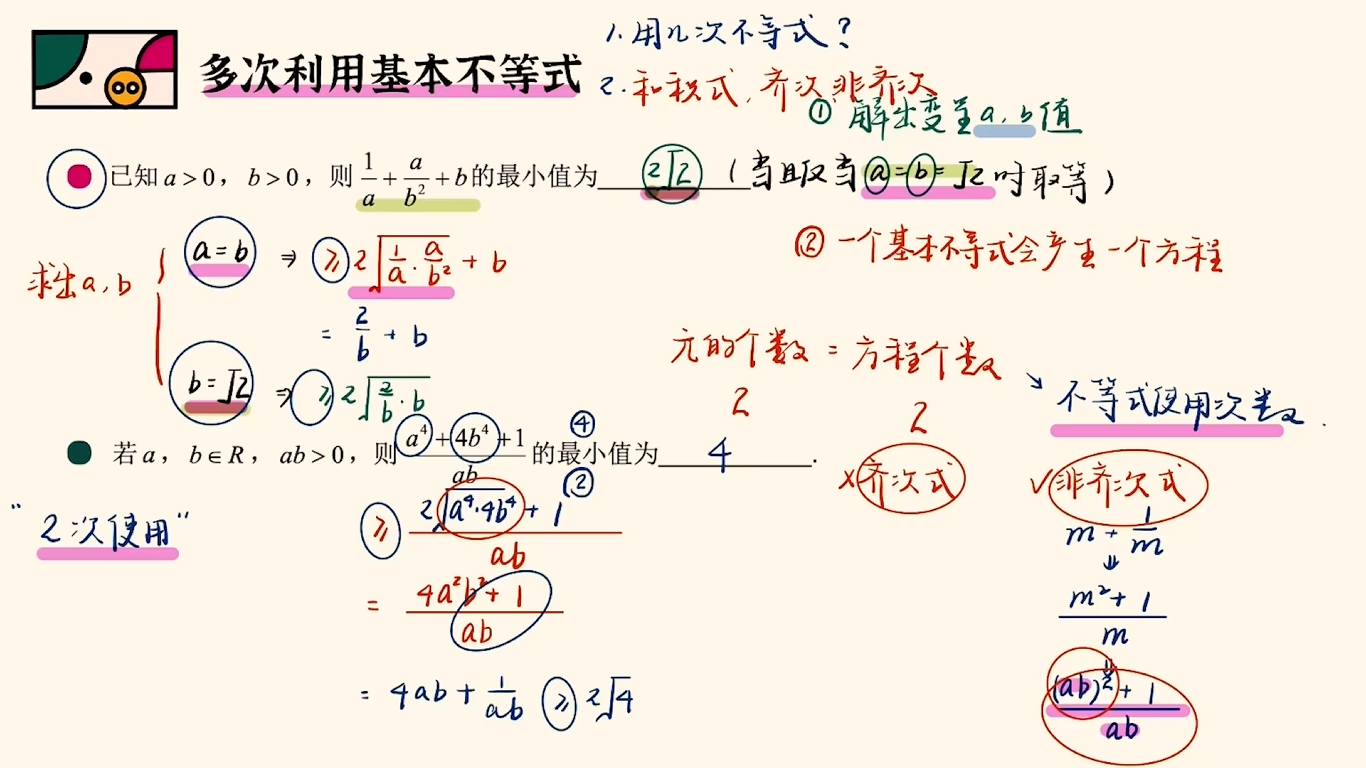 多次利用基本不等式
1. 用几次不等式?
2. 和积式, 齐次, 非齐次
① 解出变量a, b值
已知 a > 0, b > 0, 则 1/a + a/b² + b 的最小值为 2√2 (当且仅当 a = b = √2 时取等)
② 一个基本不等式会产生一个方程
求出a, b { a = b ⇒ ≥ 2√(1/a · a/b²) + b
= 2/b + b
b = √2 ⇒ ≥ 2√(2/b · b)
元的个数 = 方程个数
2 2
↘ 不等式使用次数.
若 a, b ∈ R, ab > 0, 则 (a⁴ + 4b⁴ + 1)/ab 的最小值为 4 .
④
②
× 齐次式 ✓ 非齐次式
"2次使用"
≥ (2√(a⁴·4b⁴) + 1)/ab
= (4a²b² + 1)/ab
= 4ab + 1/ab ≥ 2√4
m + 1/m
⇓
(m² + 1)/m
⇓
((ab)² + 1)/ab